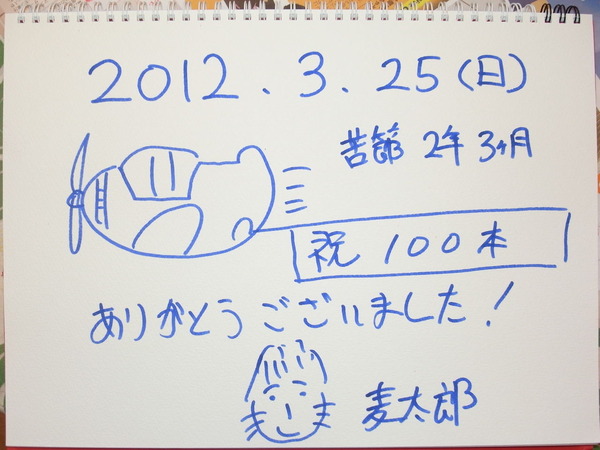 2012.3.25(日)
苦節 2年3ヶ月
祝 100本
ありがとうございました!
麦太郎